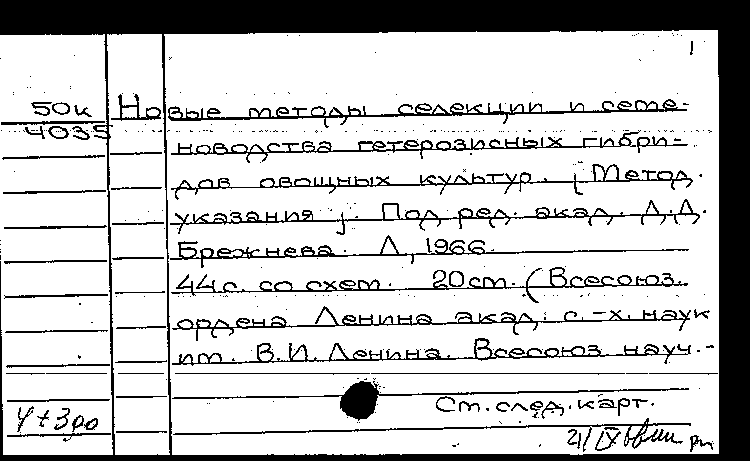 1
50к
4035
Новые методы селекции и семе-
новодства гетерозисных гибри-
дов овощных культур. [Метод.
указания]. Под ред. акад. Д.Д.
Брежнева. Л., 1966.
44с. со схем. 20см. (Всесоюз.
ордена Ленина акад. с.-х. наук
им. В.И. Ленина. Всесоюз науч.-
См. след. карт.
21/IX